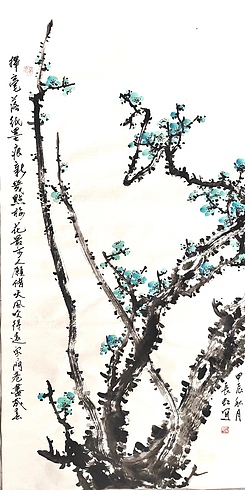 揮毫落紙墨痕新幾點梅花最可人願借天風吹得遠家門巷盡成春
甲辰秋月